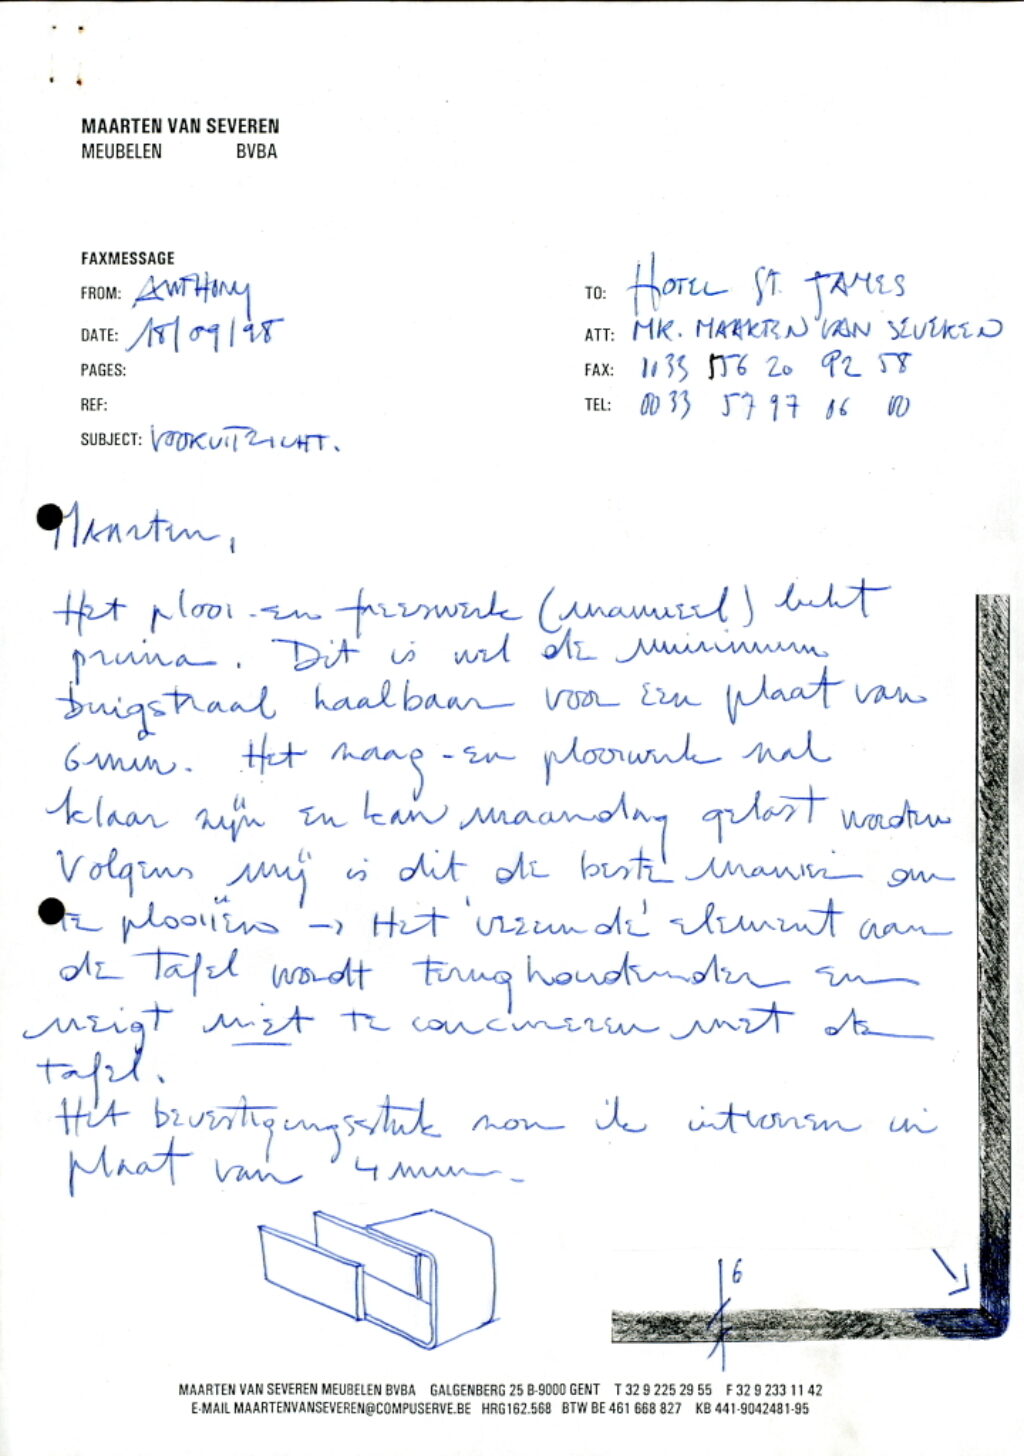 MAARTEN VAN SEVEREN
MEUBELEN BVBA
FAXMESSAGE
FROM: ANTHONY
DATE: 18/09/98
PAGES:
REF:
SUBJECT: VOORUITZICHT.
TO: HOTEL ST. JAMES
ATT: MR. MAARTEN VAN SEVEREN
FAX: 1033 556 20 92 58
TEL: 0033 57 97 06 00
Maarten,
Het plooi-en freeswerk (manueel) lukt
prima. Dit is wel de minimum
buigstraal haalbaar voor een plaat van
6 mm. Het zaag-en plooiwerk zal
klaar zijn en kan maandag gelast worden
Volgens mij is dit de beste manier om
te plooiïen → Het 'vreemde' element aan
de tafel wordt terughoudender en
neigt niet te concureren met de
tafel.
Het bevestigingsstuk zou ik uitvoeren in
plaat van 4 mm.
6
MAARTEN VAN SEVEREN MEUBELEN BVBA GALGENBERG 25 B-9000 GENT T 32 9 225 29 55 F 32 9 233 11 42
E-MAIL MAARTENVANSEVEREN@COMPUSERVE.BE HRG162.568 BTW BE 461 668 827 KB 441-9042481-95